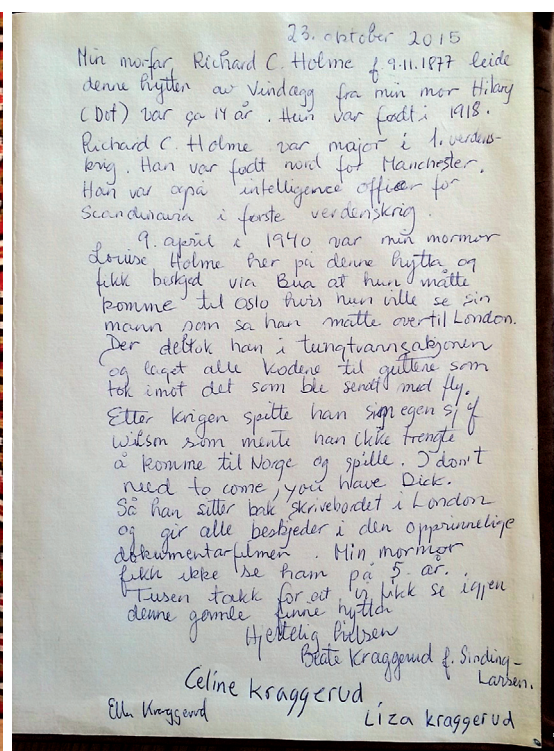 23. oktober 2015
Min morfar, Richard C. Holme f 9.11.1877 leide
denne hytten av Vindægg fra min mor Hilary
(Dot) var ça 14 år. Hun var født i 1918.
Richard C. Holme var major i 1. verdens-
krig. Han var født nord for Manchester.
Han var også intelligence officer for
Scandinavia i første verdenskrig.
9. april i 1940 var min mormor
Louise Holme her på denne hytta og
fikk beskjed via Bua at hun måtte
komme til Oslo hvis hun ville se sin
mann som sa han måtte over til London.
Der deltok han i tungtvannsaksjonen
og laget alle kodene til guttene som
tok imot det som ble sendt med fly.
Etter krigen spilte han sin egen sjef
Wilson som mente han ikke trengte
å komme til Norge og spille. I don't
need to come, you have Dick.
Så han sitter bak skrivebordet i London
og gir alle beskjeder i den opprinnelige
dokumentarfilmen. Min mormor
fikk ikke se ham på 5 år.
Tusen takk for at vi fikk se igjen
denne gamle finne hytta
Hjertelig hilsen
Beate Kraggerud f. Sinding-
Larsen.
Celine Kraggerud
Ella Kraggerud
Liza Kraggerud